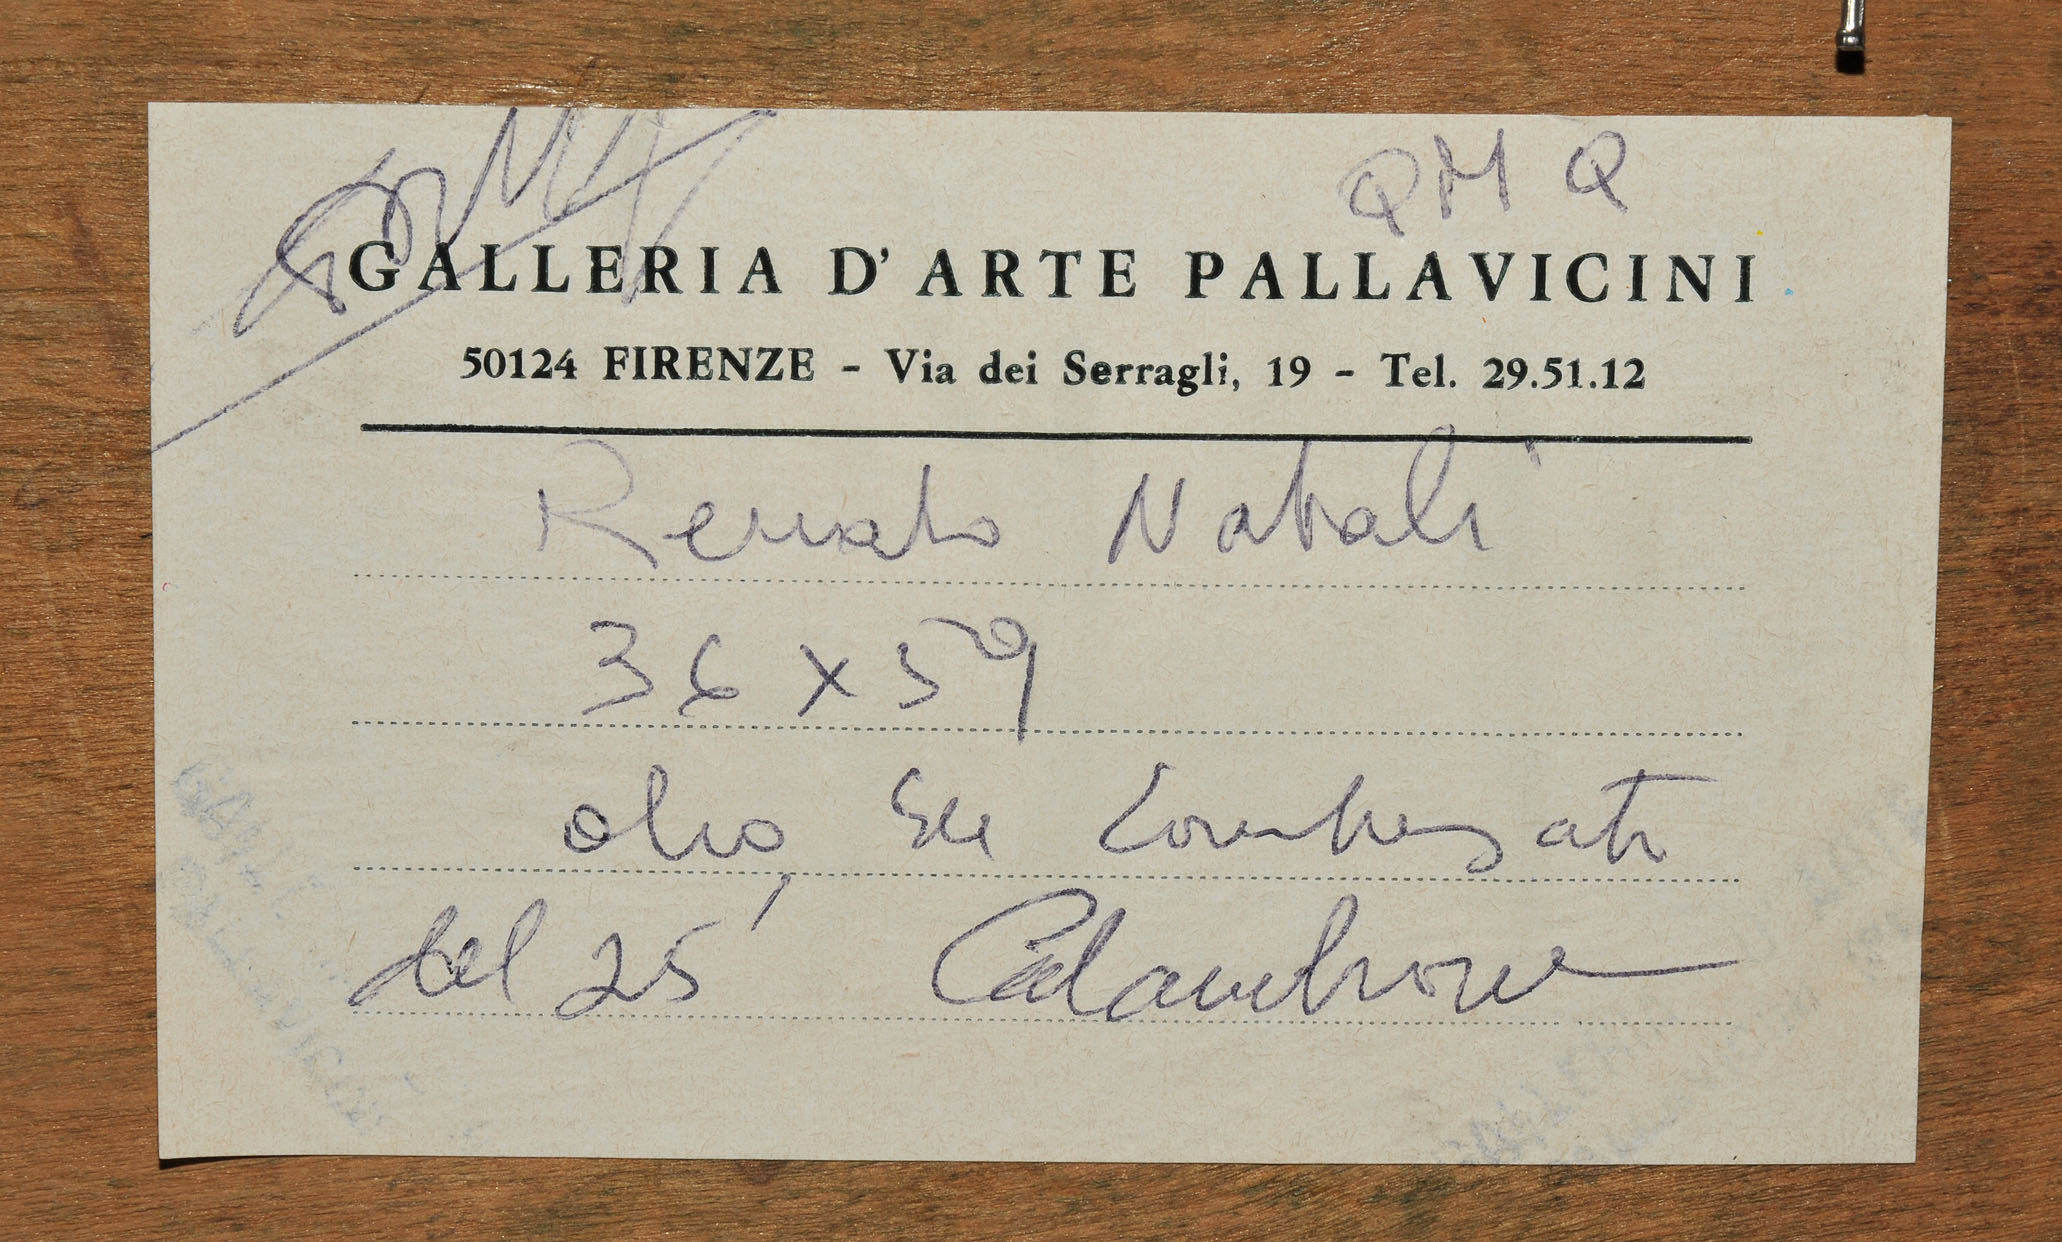 QMQ
GALLERIA D' ARTE PALLAVICINI
50124 FIRENZE - Via dei Serragli, 19 - Tel. 29.51.12
Renato Natali
36 x 59
olio su compensato
del 25' Calambrone